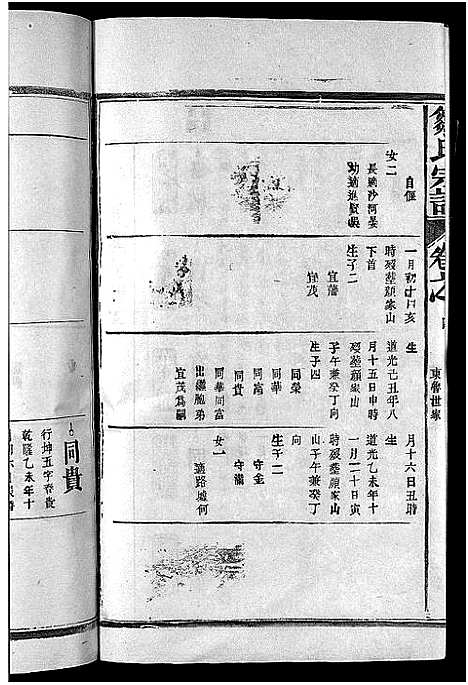 鄒氏宗譜
卷之
東魯世家
自優
女二
長適沙河晏
幼適進賢吳
一月初十日亥
時歿塟顏家山
下首
生子二
宜籓
宜茂
生
道光己丑年八
月十五日申時
歿塟顏家山
子午兼癸丁向
生子四
同榮
同華
同富
同貴
同華同富
出繼胞弟
宜茂為嗣
月十六日丑時
生
道光乙未年十
一月二十日寅
時歿塟顏家山
山子午兼癸丁
向
生子二
守金
守滿
女一
適路墟何
同貴
行坤五字春貴
乾隆乙未年十